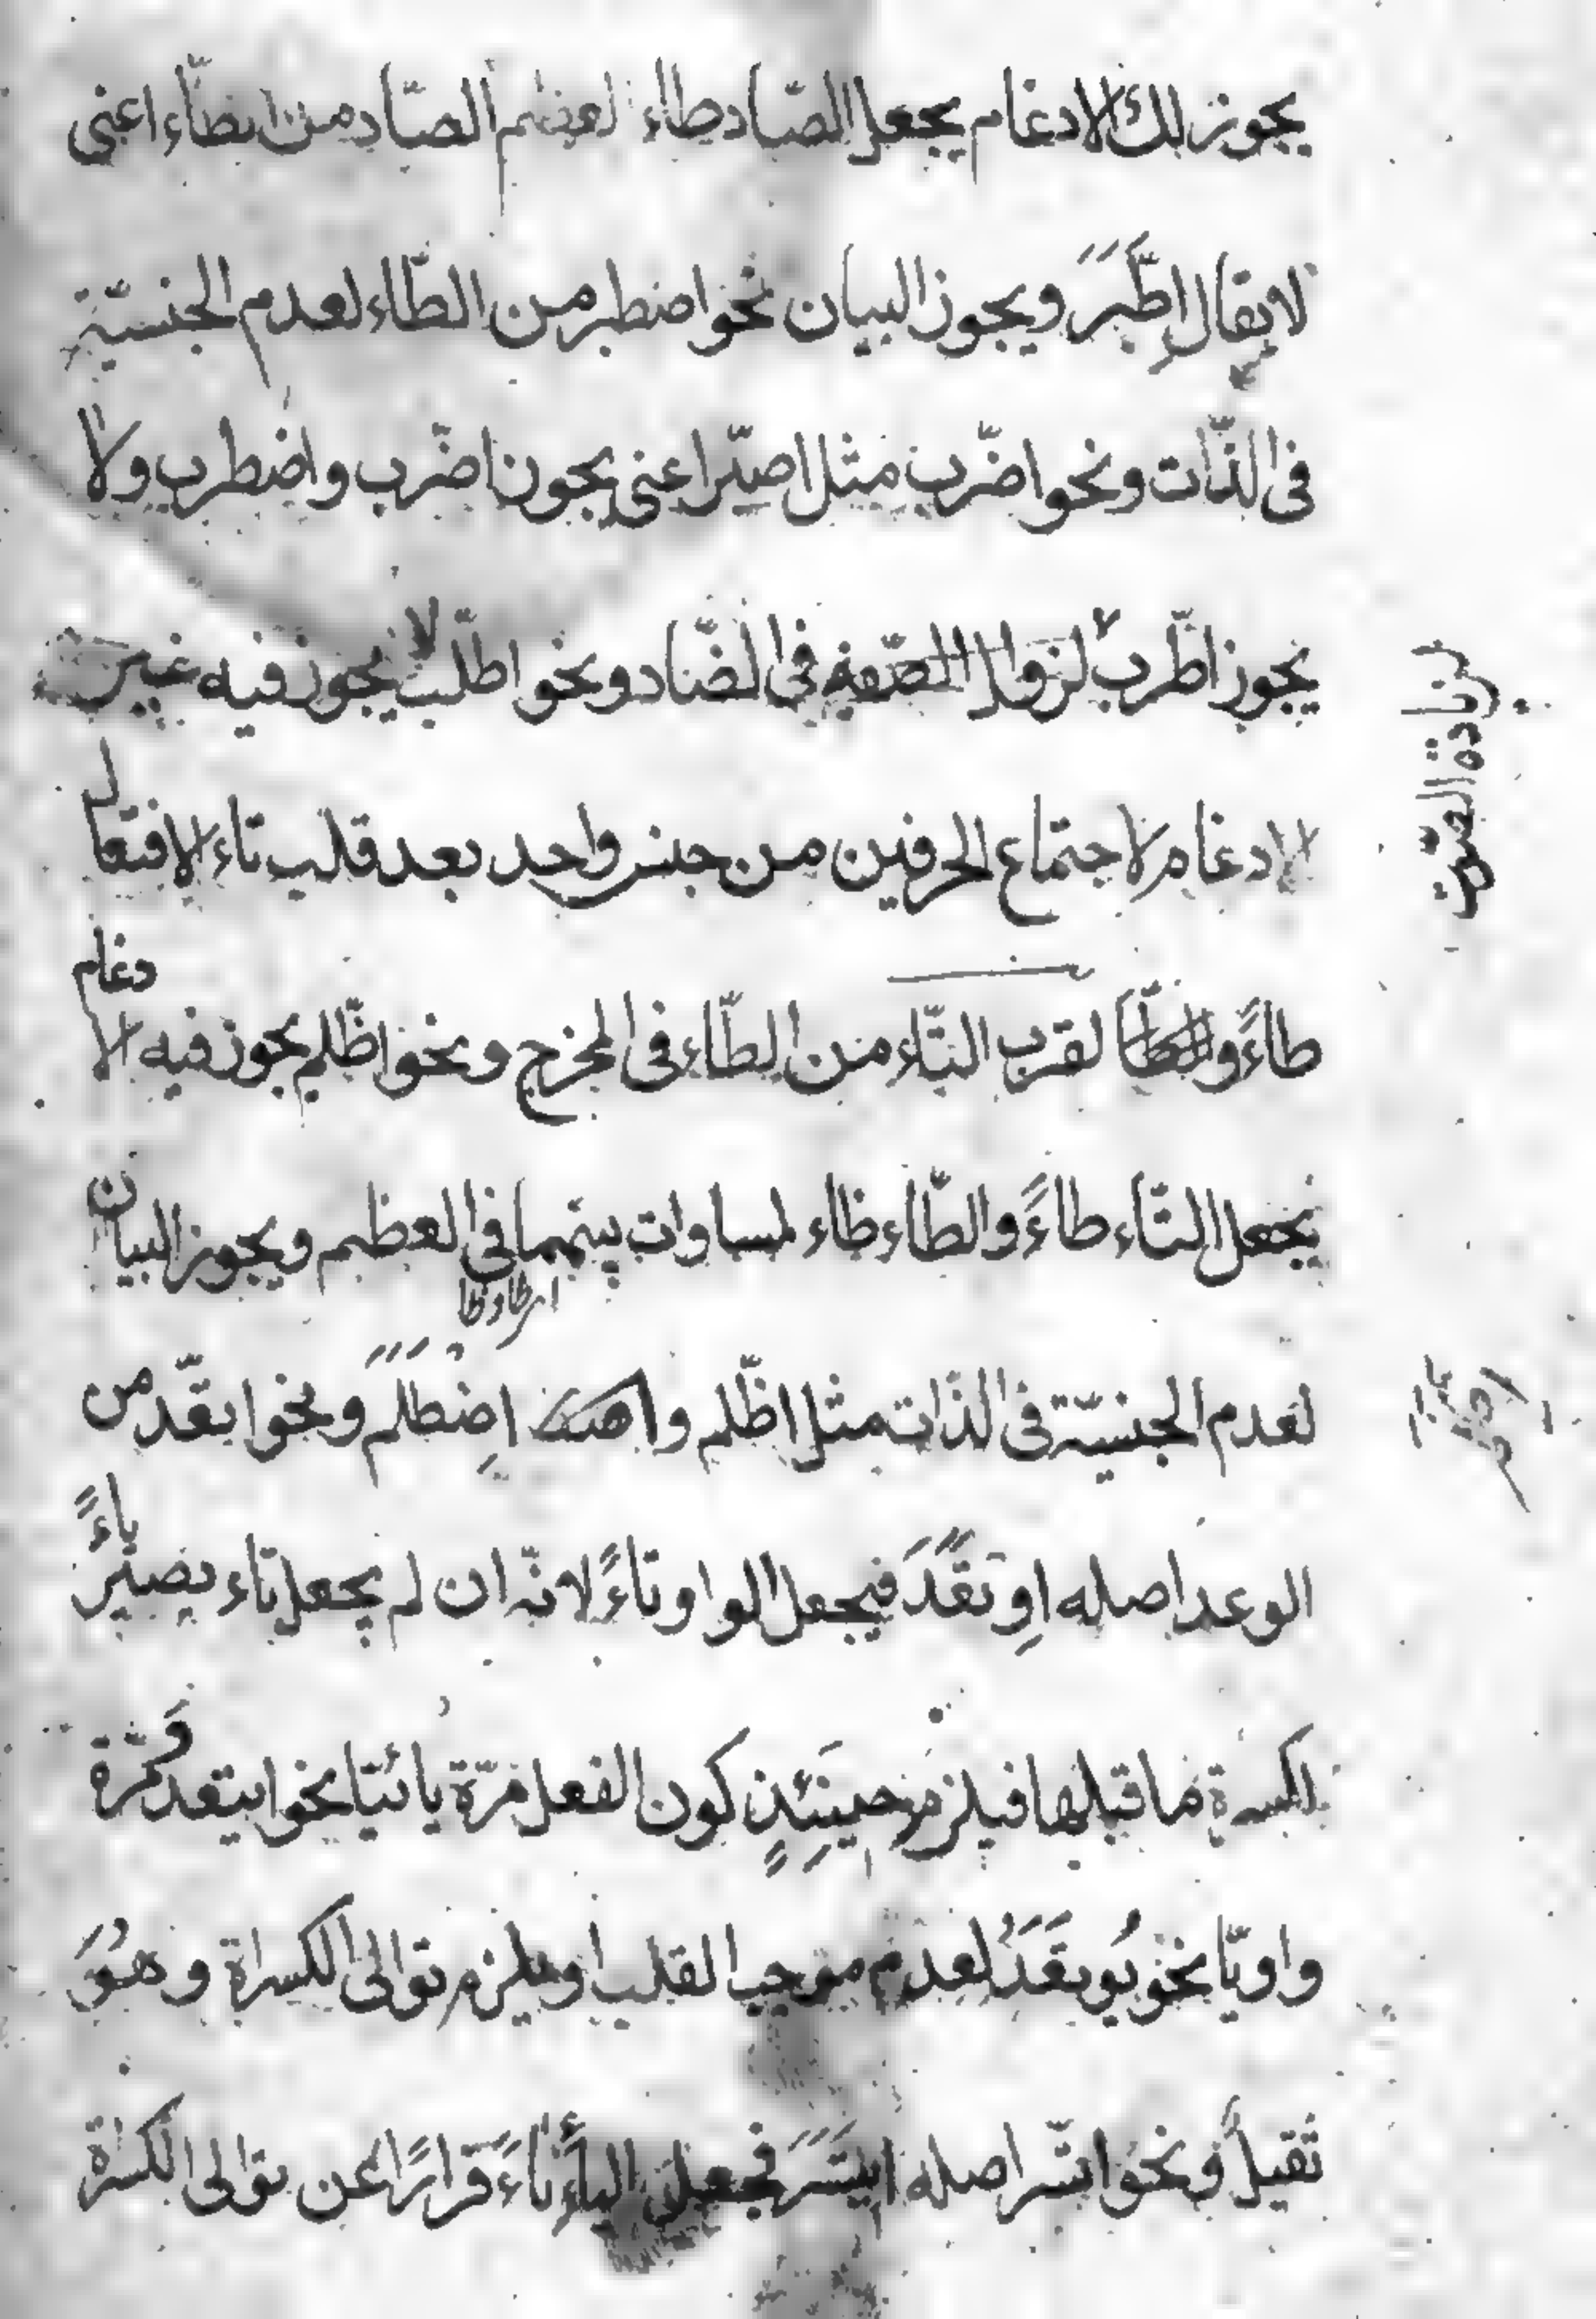 يجوز لك الادغام يجعل الصّاد طاء لعظم الصّاد من الطّاء اعنى
لا يقال اِطَّبَرَ ويجوز البيان نحو اضطبر من الطّاء لعدم الجنسيّة
فى الذّات ونحو اضّرب مثل اصبّر اعنى يجوز اضّرب واضطرب ولا
يجوز اطّرب لزوال الصّفة فى الضّاد ونحو اطّلب لا يجوز فيه غير
الادغام لاجتماع الحرفين من جنس واحد بعد قلب تاء الافتعال
طاءً لقرب التّاء من الطّاء فى المخرج ونحو اظّلم يجوز فيه الادغام
يجعل التّاء طاءً والطّاء ظاء لمساوات بينهما فى العظم ويجوز البيان
لعدم الجنسيّة فى الذات مثل اظّلم و اِضطَلَمَ ونحو اتقّد من
الوعد اصله اِوتَقَدَ فيجعل الواو تاءً لانّه ان لم يجعل تاء يصير ياءً
لكسرة ما قبلها فيلزم حينَئِذٍ كون الفعل مرّة يائيّا نحو ايتعد ومرّة
واويّا نحو يُوتَقَدُ لعدم موجب القلب او يلزم توالى الكسراة وهُوَ
ثقيل ونحو اتّسر اصله ايتَسَرَ فجعل الياء تاءً قرارًا عن توالى الكسرة
بزيادة الصّوت